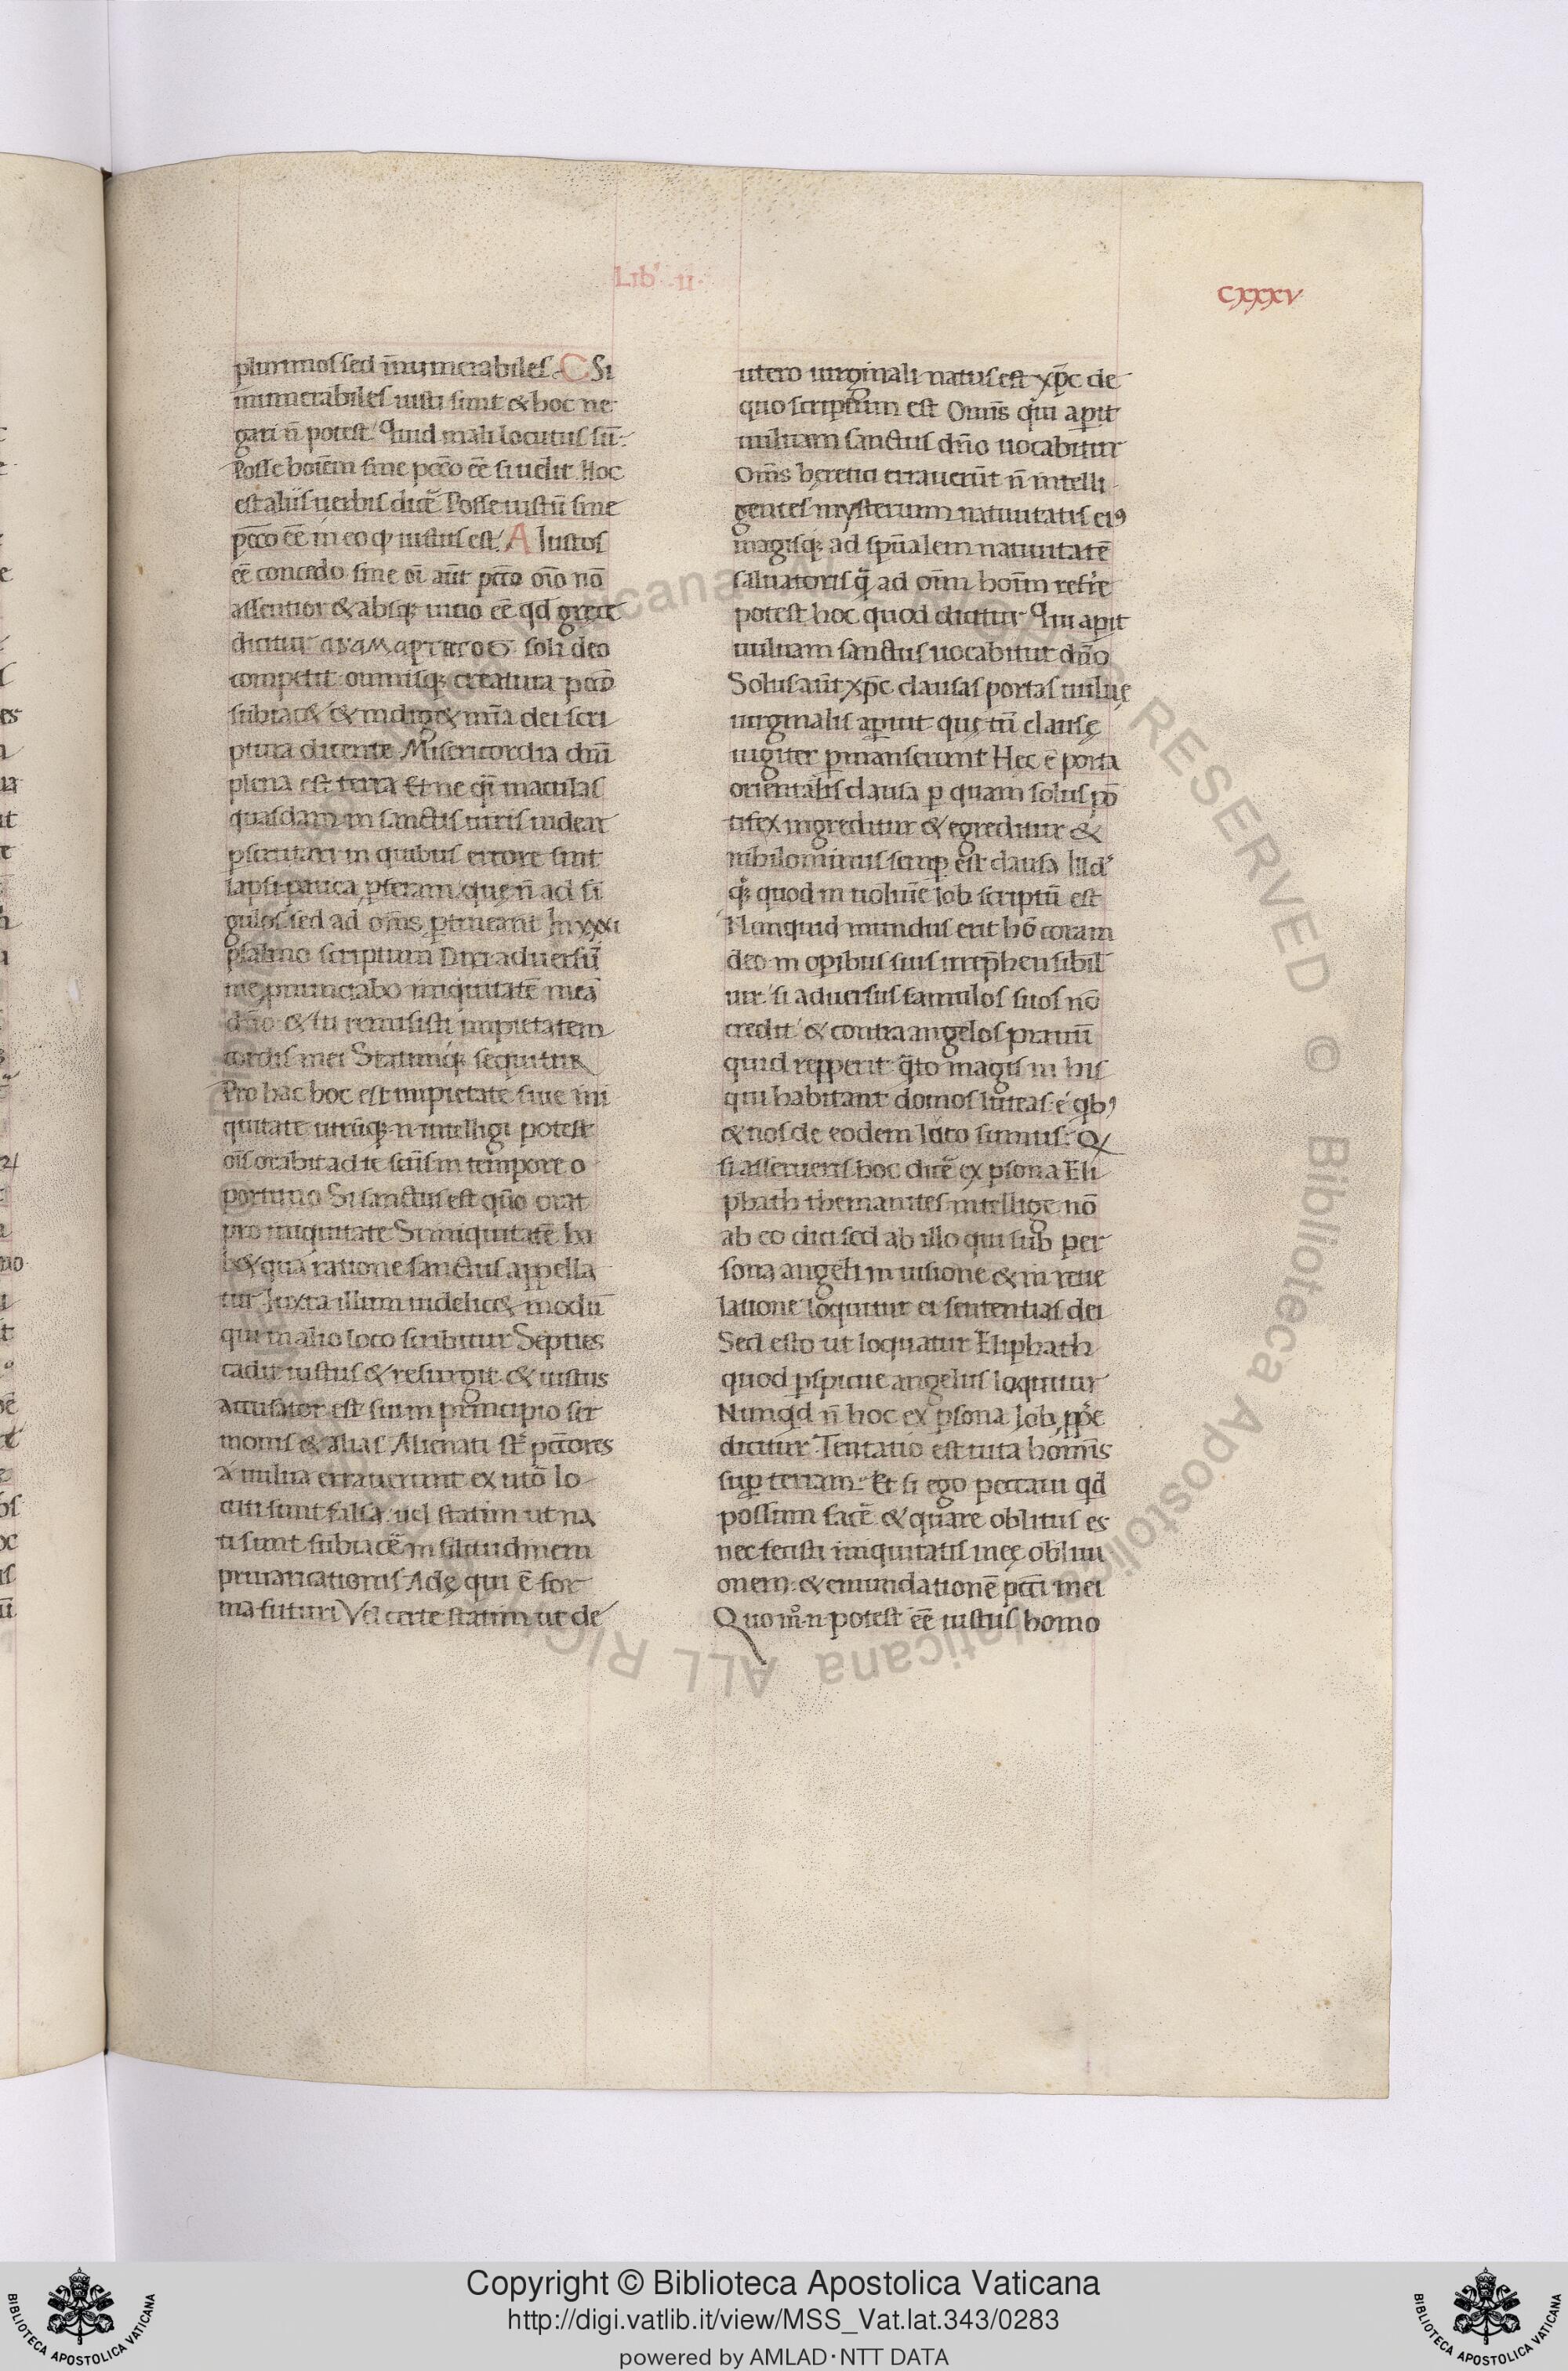 Lib' .ii.
cxxxv
plurimos sed īnumerabiles. C Si
innumerabiles iusti sunt & hoc ne
gari n̄ potest. Quid mali locutus sū.
Posse hoīem sine pcc̄o eē si uelit. Hoc
est aliis uerbis dicē Posse iustū sine
pcc̄o eē in eo qꝫ iustus est. A Iustos
eē concedo sine oī aūt pcc̄o oīo nō
assentior & absqꝫ uitio eē qd grece
dicitur αναμαρτητοσ soli deo
competit omnisqꝫ creatura pccō
subiac& & indig& mīa dei scri
ptura dicente Misericordia dnī
plena est terra Et ne qͥ maculas
quasdam in sanctis uiris uidear
pscrutari in quibus errore sint
lapsi pauca pferam que n̄ ad si
gulos sed ad om̄s ptineant In xxxi
psalmo scriptum Dixi aduersū
me pnunciabo iniquitatē meā
dn̄o & tu remisisti impietatem
cordis mei Statimqꝫ sequitur
Pro hac hoc est impietate siue ini
quitate utrūqꝫ n̄ intelligi potest
oīs orabit ad te scūs in tempore o
portuno Si sanctus est quō orat
pro iniquitate Si iniquitatē ha
b& qua ratione sanctus appella
tur Iuxta illum uidelic& modū
qui in alio loco scribitur Septies
cadit iustus & resurgit & iustus
accusator est sui in principio ser
monis & alias Alienati st̄ pccores
a uulua errauerunt ex utō lo
cuti sunt falsa uel statim ut na
ti sunt subiacē in silitudinem
preuaricationis Ade qui ē for
ma futuri Vel certe statim ut de
utero uirginali natus est xp̄c de
quo scriptum est Omīs qui apit
uuluam sanctus dn̄o uocabitur
Om̄s heretici errauerūt n̄ intelli
gentes mysterium natiuitatis eiꝰ
magisqꝫ ad spūalem natiuitatē
saluatoris q̄ ad oīm hoīm refrͥe
potest hoc quod dicitur Qui apit
uuluam sanctus uocabitur dn̄o
Solus aūt xp̄c clausas portas uulue
uirginalis aperuit que tn̄ clause
iugiter pmanserunt Hec ē porta
orientalis clausa p quam solus pō
tifex ingreditur & egreditur &
nihilominus semp est clausa Illd'
qͦqꝫ quod in uolum̄e Iob scriptū est
Nunquid mundus erit hō coram
deo in opibus suis irrep̄hensibil̄
uir si aduersus famulos suos nō
credit & contra angelos prauū
quid repperit q̄to magis in his
qui habitant domos luteas ē qbꝰ
& nos de eodem luto sumus. Qͩ
si asserueris hoc dicē ex psona Eli
phath themanites intellige nō
ab eo dici sed ab illo qui sub per
sona angeli in uisione & in reue
latione loquitur ei sententias dei
Sed esto ut loquatur Eliphath
quod pspicue angelus loquitur
Nunqd n̄ hoc ex psona Iob ppͥe
dicitur Tentatio est uita hominis
sup terram. Et si ego peccaui qd
possum facē & quare oblitus es
nec fecisti iniquitatis mee obliui
onem & emundationē pccī mei
Quomͦ n̄ potest eē iustus homo
Copyright © Biblioteca Apostolica Vaticana
http://digi.vatlib.it/view/MSS_Vat.lat.343/0283
powered by AMLAD·NTT DATA
BIBLIOTECA APOSTOLICA VATICANA
BIBLIOTECA APOSTOLICA VATICANA